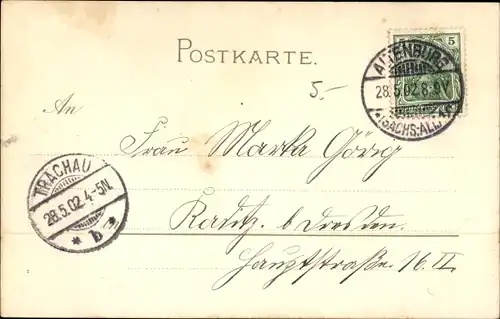 POSTKARTE.
5
5
ALTENBURG
28.5.02.8-9V
*(SACHS.-ALT.)*
5.-
An
Frau Marta Görg
TRACHAU
28.5.02.4-5N.
* b *
Raditz b Dresden.
Hauptstraße 16. II.